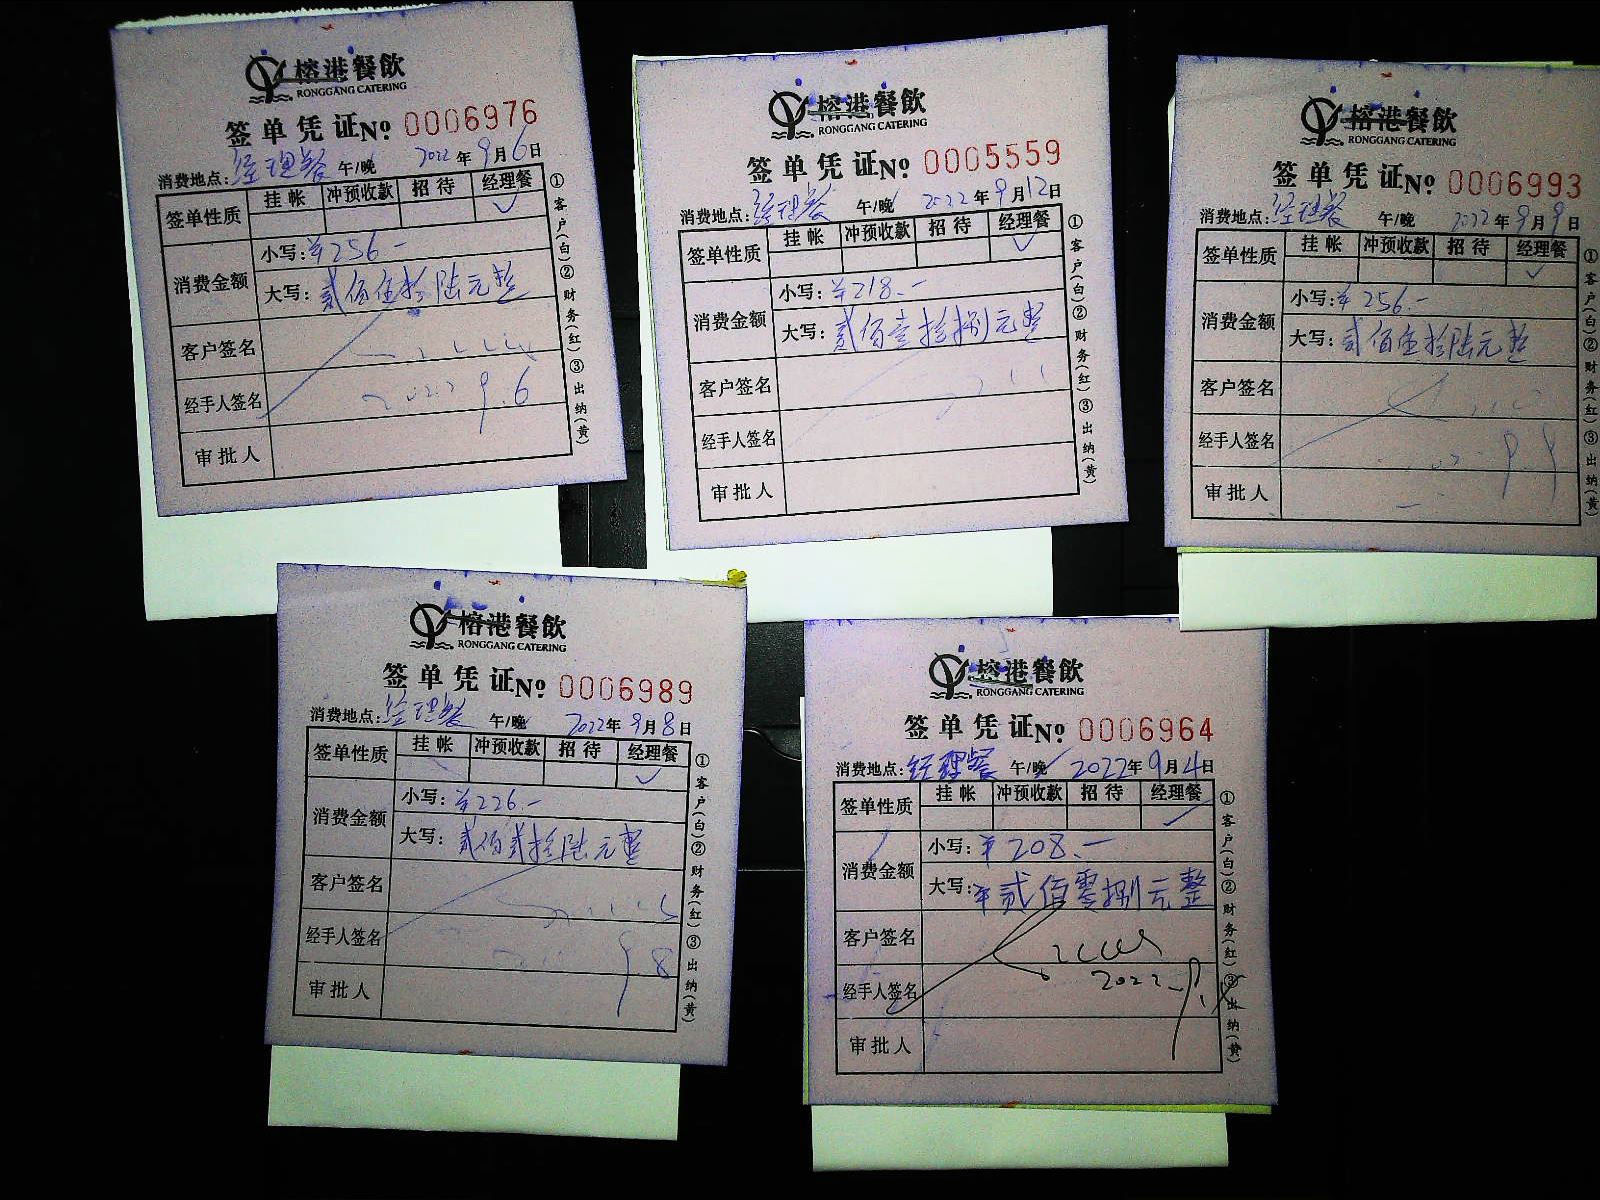 榕港餐飲
RONGGANG CATERING
签单凭证№ 0006976
消费地点:经理餐 午/晚 2022年9月6日
签单性质 挂帐 冲预收款 招待 经理餐
✓
消费金额 小写:¥256.-
大写:贰佰伍拾陆元整
客户签名
经手人签名 2022.9.6
审批人
①客户(白)②财务(红)③出纳(黄)
榕港餐飲
RONGGANG CATERING
签单凭证№ 0005559
消费地点:经理餐 午/晚 2022年9月12日
签单性质 挂帐 冲预收款 招待 经理餐
✓
消费金额 小写:¥218.-
大写:贰佰壹拾捌元整
客户签名
经手人签名
审批人
①客户(白)②财务(红)③出纳(黄)
榕港餐飲
RONGGANG CATERING
签单凭证№ 0006993
消费地点:经理餐 午/晚 2022年9月9日
签单性质 挂帐 冲预收款 招待 经理餐
✓
消费金额 小写:¥256.-
大写:贰佰伍拾陆元整
客户签名
经手人签名
审批人
①客户(白)②财务(红)③出纳(黄)
榕港餐飲
RONGGANG CATERING
签单凭证№ 0006989
消费地点:经理餐 午/晚 2022年9月8日
签单性质 挂帐 冲预收款 招待 经理餐
✓
消费金额 小写:¥226.-
大写:贰佰贰拾陆元整
客户签名
经手人签名 9.8
审批人
①客户(白)②财务(红)③出纳(黄)
榕港餐飲
RONGGANG CATERING
签单凭证№ 0006964
消费地点:经理餐 午/晚 2022年9月4日
签单性质 挂帐 冲预收款 招待 经理餐
✓
消费金额 小写:¥208.-
大写:¥贰佰零捌元整
客户签名
经手人签名 2022.9.
审批人
①客户(白)②财务(红)③出纳(黄)